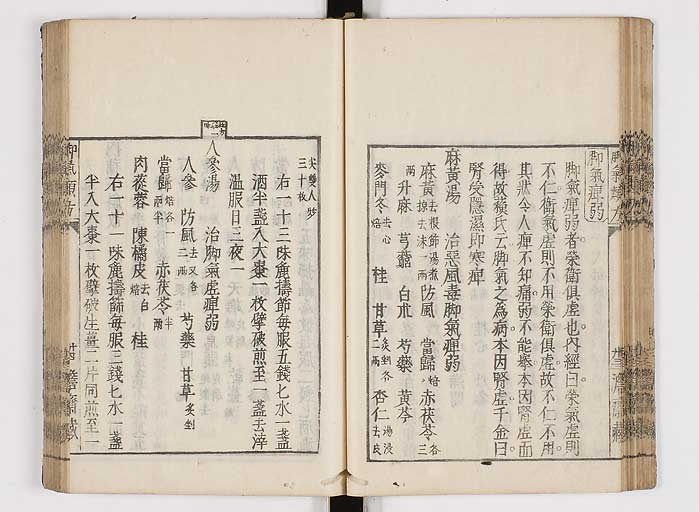 脚氣痺弱
脚氣痺弱者榮衛俱虛也內經曰榮氣虛則
不仁衛氣虛則不用榮衛俱虛故不仁不用
其狀令人痺不知痛弱不能舉本因腎虛而
得故蘓氏云脚氣之為病本因腎虛千金曰
腎受隱濕即寒痺
麻黃湯 治惡風毒脚氣痺弱
麻黃去根節湯煮掠去沫一兩 防風 當歸焙 赤茯苓各三兩
升麻 芎藭 白朮 芍藥 黃芩
麥門冬去心焙 桂 甘草炙剉各二兩 杏仁湯浸去皮
尖雙人炒三十枚
右一十三味麁擣篩每服五錢匕水一盞
酒半盞入大棗一枚擘破煎至一盞去滓
溫服日三夜一
人參湯 治脚氣虛痺弱
人參 防風去叉各二兩 芍藥 甘草炙剉
當歸焙各一兩半 赤茯苓半兩
肉蓯蓉 陳橘皮去白焙 桂
右一十一味麁擣篩每服三錢匕水一盞
半入大棗一枚擘破生薑二片同煎至一